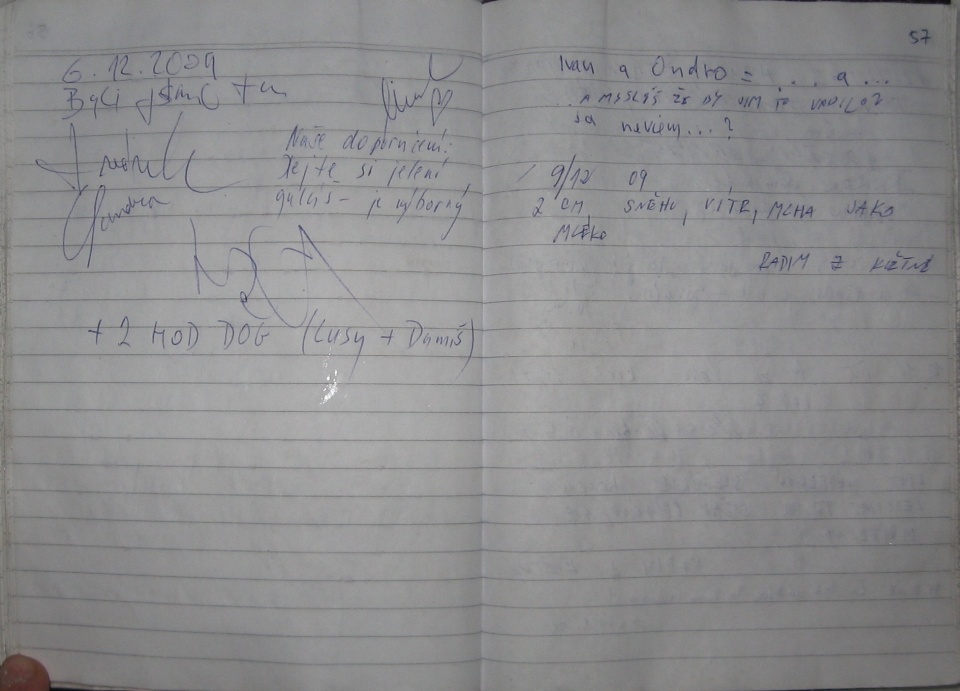 6.12.2009
Byli jsme tu
Naše doporučení:
Dejte si jelení
guláš - je výborný
+ 2 HOD DOG (Lusy + Damiš)
57
Ivan a Ondro = ... a ...
A MYSLÍŠ ŽE BY JIM TO VADILO?
Ja neviem...?
9/12 09
2 CM SNĚHU, VÍTR, MLHA JAKO
MLÉKO
RADIM Z